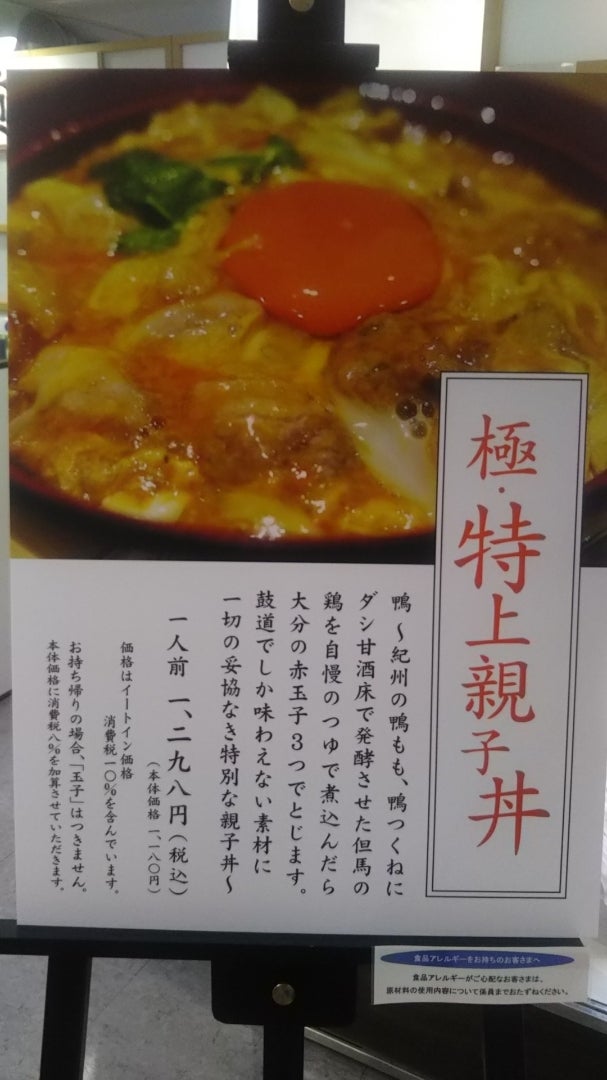 極・特上親子丼
鴨～紀州の鴨もも、鴨つくねに
ダシ甘酒床で発酵させた但馬の
鶏を自慢のつゆで煮込んだら
大分の赤玉子３つでとじます。
鼓道でしか味わえない素材に
一切の妥協なき特別な親子丼～
一人前 一、二九八円（税込）
（本体価格 一、一八〇円）
価格はイートイン価格
消費税一〇％を含んでいます。
お持ち帰りの場合、「玉子」はつきません。
本体価格に消費税八％を加算させていただきます。
食品アレルギーをお持ちのお客さまへ
食品アレルギーがご心配なお客さまは、
原材料の使用内容について係員までおたずねください。